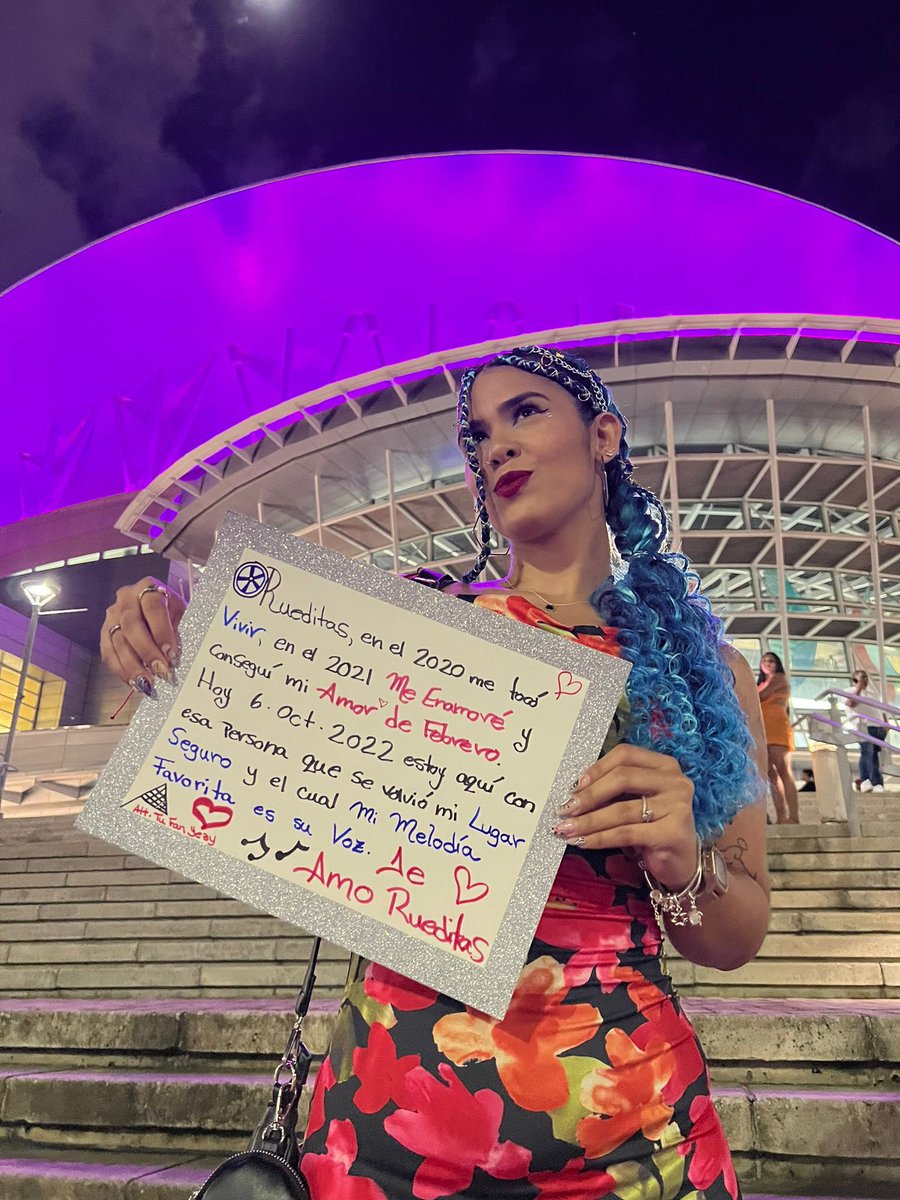 Rueditas, en el 2020 me tocó
Vivir, en el 2021 Me Enamoré y
Conseguí mi Amor de Febrero.
Hoy 6. Oct. 2022 estoy aquí con
esa Persona que se volvió mi Lugar
Seguro y el cual Mi Melodía
Favorita es su Voz. Ae
Amo Rueditas
Att. Tu Fan Yezy